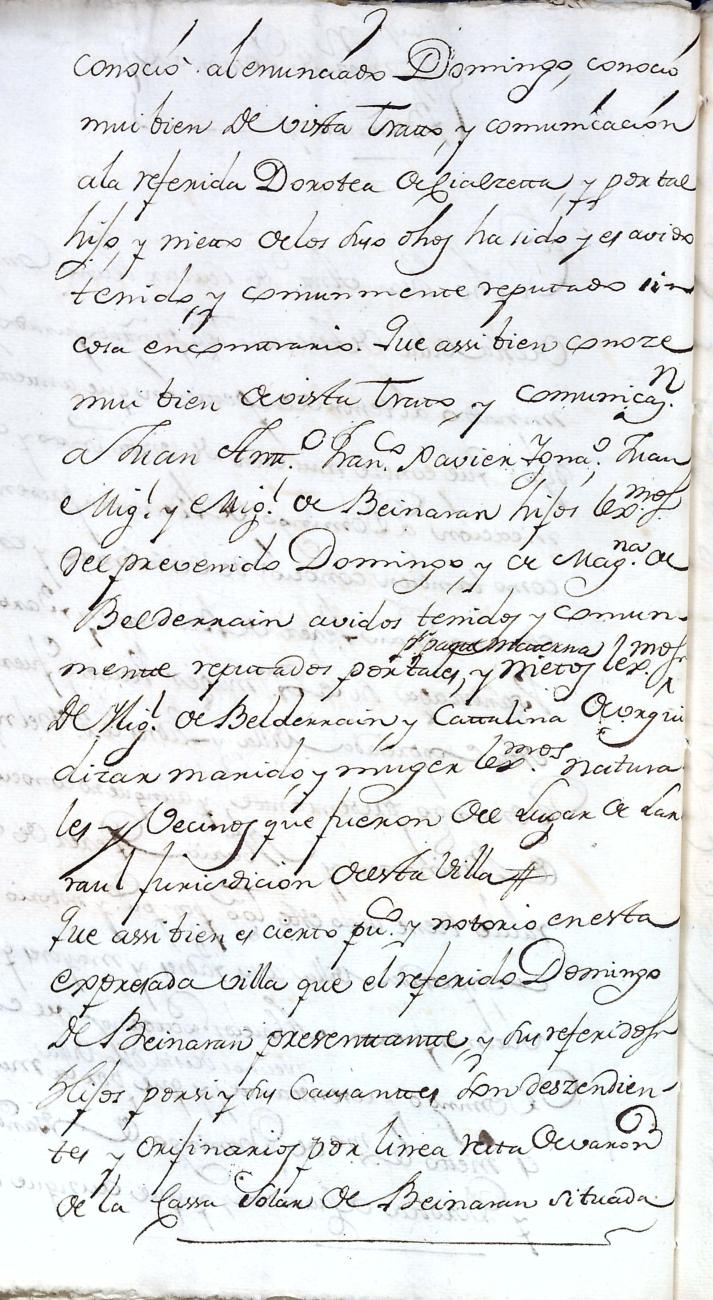 conoció al enunciado Domingo, conoció
mui bien de vista tratto, y comunicación
ala referida Dorotea de y por tal
hijo, y nietto delos suso dhos ha sido y es avido
tenido, y comunmente reputado sin
cosa encontrario. Que assi bien conoze
mui bien de vista tratto y comunicaz.n
a Juan Antt.o Fran.co Xavier Igna.o Juan
Mig.l y Mig.l de Beinaran hijos lex.mos
del prevenido Domingo y de Mag.na de
Belderrain avidos tenidos y comun-
p.r partte materna
mente reputados por tales, y Nietos lex.mos
de Mig.l de Belderrain, y Cattalina de orgui
dizar marido, y muger lex.mos natura
les y Vecinos que fueron del Lugar de Lar
raul Jurisdicion de esta Villa #
Que assi bien es cierto pu.co y notorio en esta
expresada villa que el referido Domingo
de Beinaran presenttantte, y sus referidos
Hijos por si y sus Causanttes son deszendien-
tes y orijinarios por linea recta de varon
de la Cassa Solar de Beinaran situada